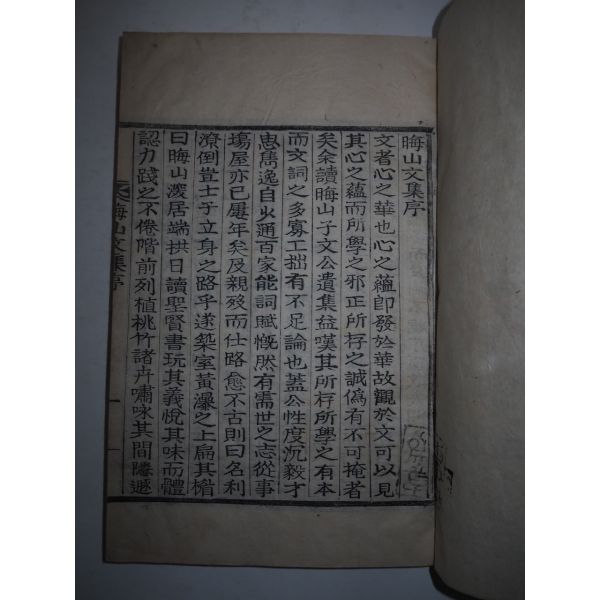 晦山文集序
文者心之華也心之蘊卽發於華故觀於文可以見
其心之蘊而所學之邪正所存之誠僞有不可掩者
矣余讀晦山子文公遺集益嘆其所存所學之有本
而文詞之多寡工拙有不足論也蓋公性度沉毅才
思雋逸自少通百家能詞賦慨然有需世之志從事
塲屋亦已屢年矣及親歿而仕路愈不古則曰名利
潦倒豈士子立身之路乎遂築室黃瀑之上扁其楣
曰晦山溪居端拱日讀聖賢書玩其義悅其味而體
認力踐之不倦階前列植桃竹諸卉嘯咏其間隱遯
晦山文集序
一